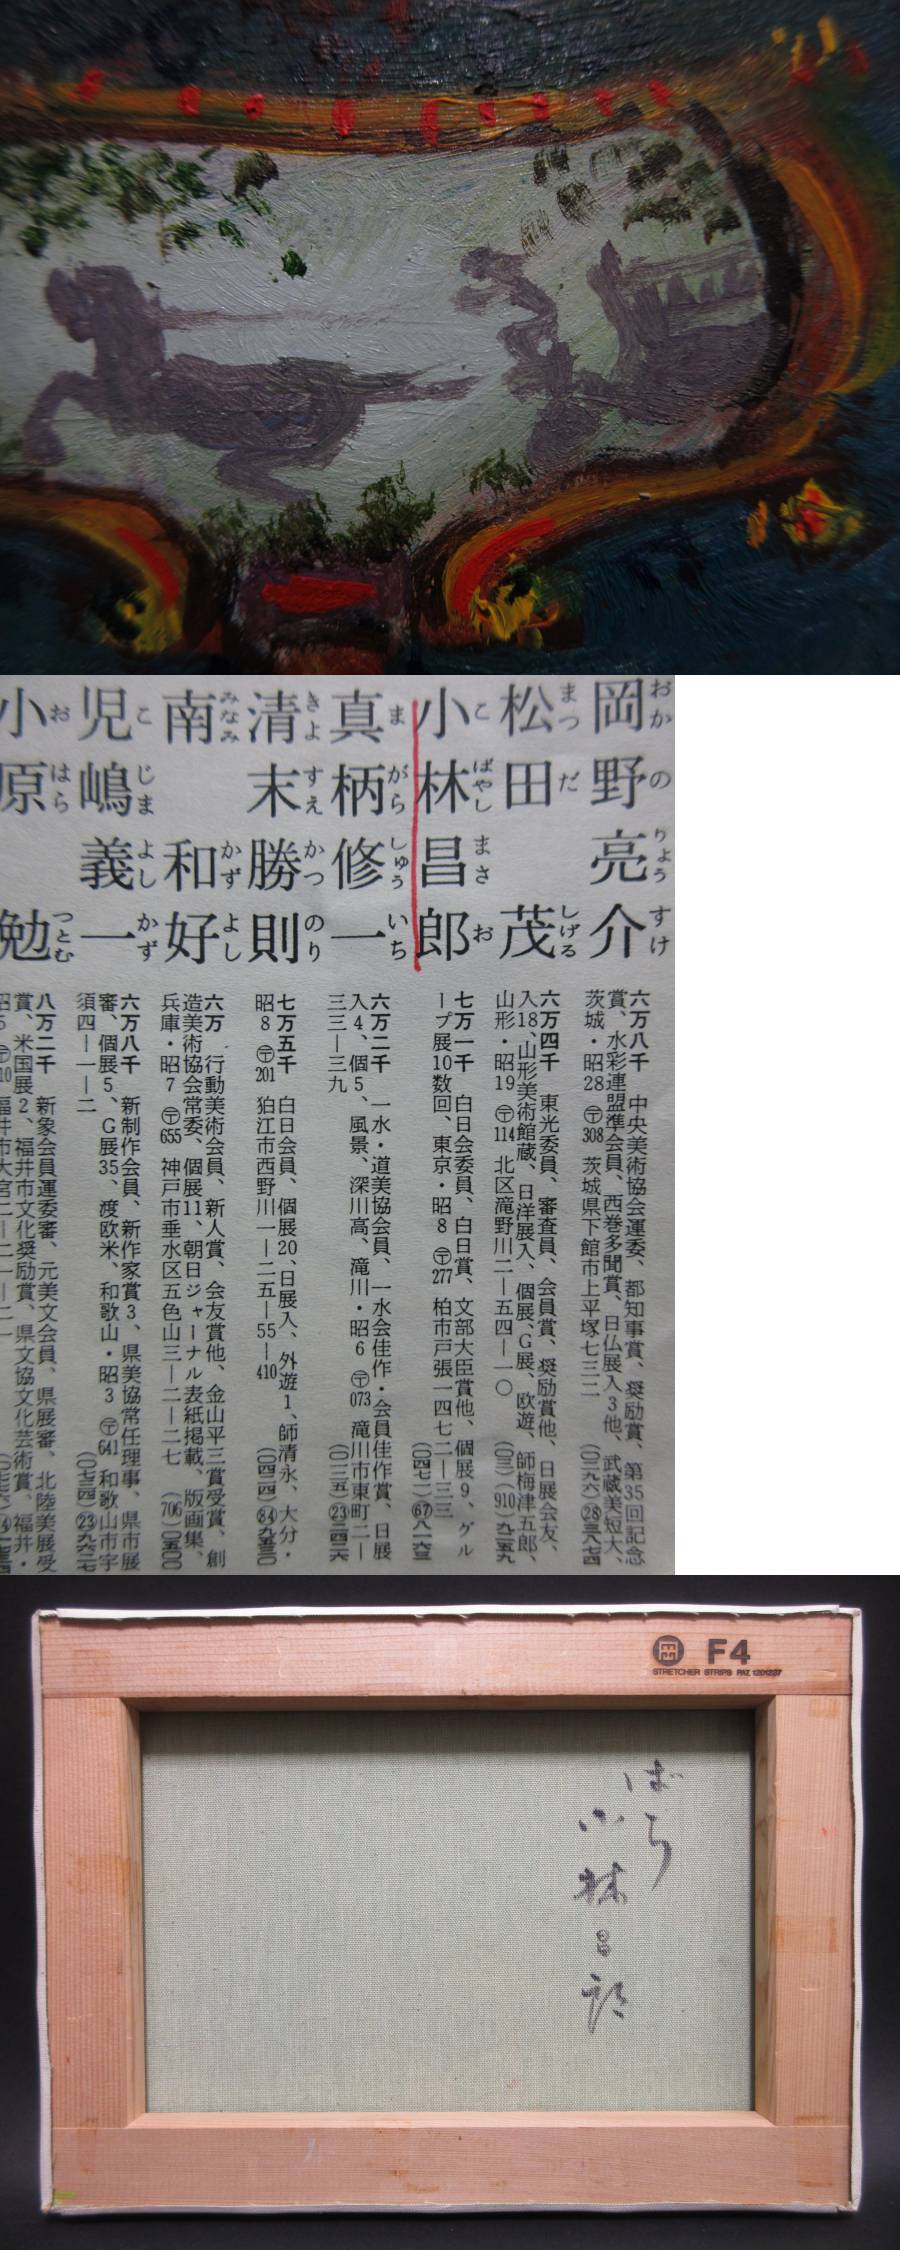 岡野亮介
おかのりょうすけ
六万八千 中央美術協会運委、都知事賞、奨励賞、第35回記念
賞、水彩連盟準会員、西巻多聞賞、日仏展入3他、武蔵美短大、
茨城・昭28 〒308 茨城県下館市上平塚七三二
松田茂
まつだしげる
六万四千 東光委員、審査員、会員賞、奨励賞他、日展会友、
入18、山形美術館蔵、日洋展入、個展、G展、欧遊、師梅津五郎、
山形・昭19 〒114 北区滝野川二ー五四ー一〇
小林昌郎
こばやしまさお
七万一千 白日会委員、白日賞、文部大臣賞他、個展9、グル
ープ展10数回、東京・昭8 〒277 柏市戸張一四七二ー三三
真柄修一
まがらしゅういち
六万二千 一水・道美協会員、一水会佳作・会員佳作賞、日展
入4、個5、風景、深川高、滝川・昭6 〒073 滝川市東町二ー
三三ー三九
清末勝則
きよすえかつのり
七万五千 白日会員、個展20、日展入、外遊1、師清永、大分・
昭8 〒201 狛江市西野川一ー二五ー55ー410
南和好
みなみかずよし
六万 行動美術会員、新人賞、会友賞他、金山平三賞受賞、創
造美術協会常委、個展11、朝日ジャーナル表紙掲載、版画集、
兵庫・昭7 〒655 神戸市垂水区五色山三ー二ー二七
児嶋義一
こじまよしかず
六万八千 新制作会員、新作家賞3、県美協常任理事、県市展
審、個展5、G展35、渡欧米、和歌山・昭3 〒641 和歌山市宇
須四ー一ー二
小原勉
おはらつとむ
八万二千 新象会員運委審、元美文会員、県展審、北陸美展受
賞、米国展2、福井市文化奨励賞、県文協文化芸術賞、福井・
岡 F4
STRETCHER STRIPS PAT. 1201237
ばち
小林昌郎